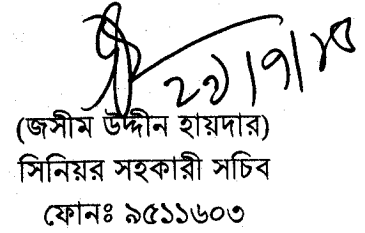 ২৯/৭/১০
(জসীম উদ্দীন হায়দার)
সিনিয়র সহকারী সচিব
ফোনঃ ৯৫১১৬০৩